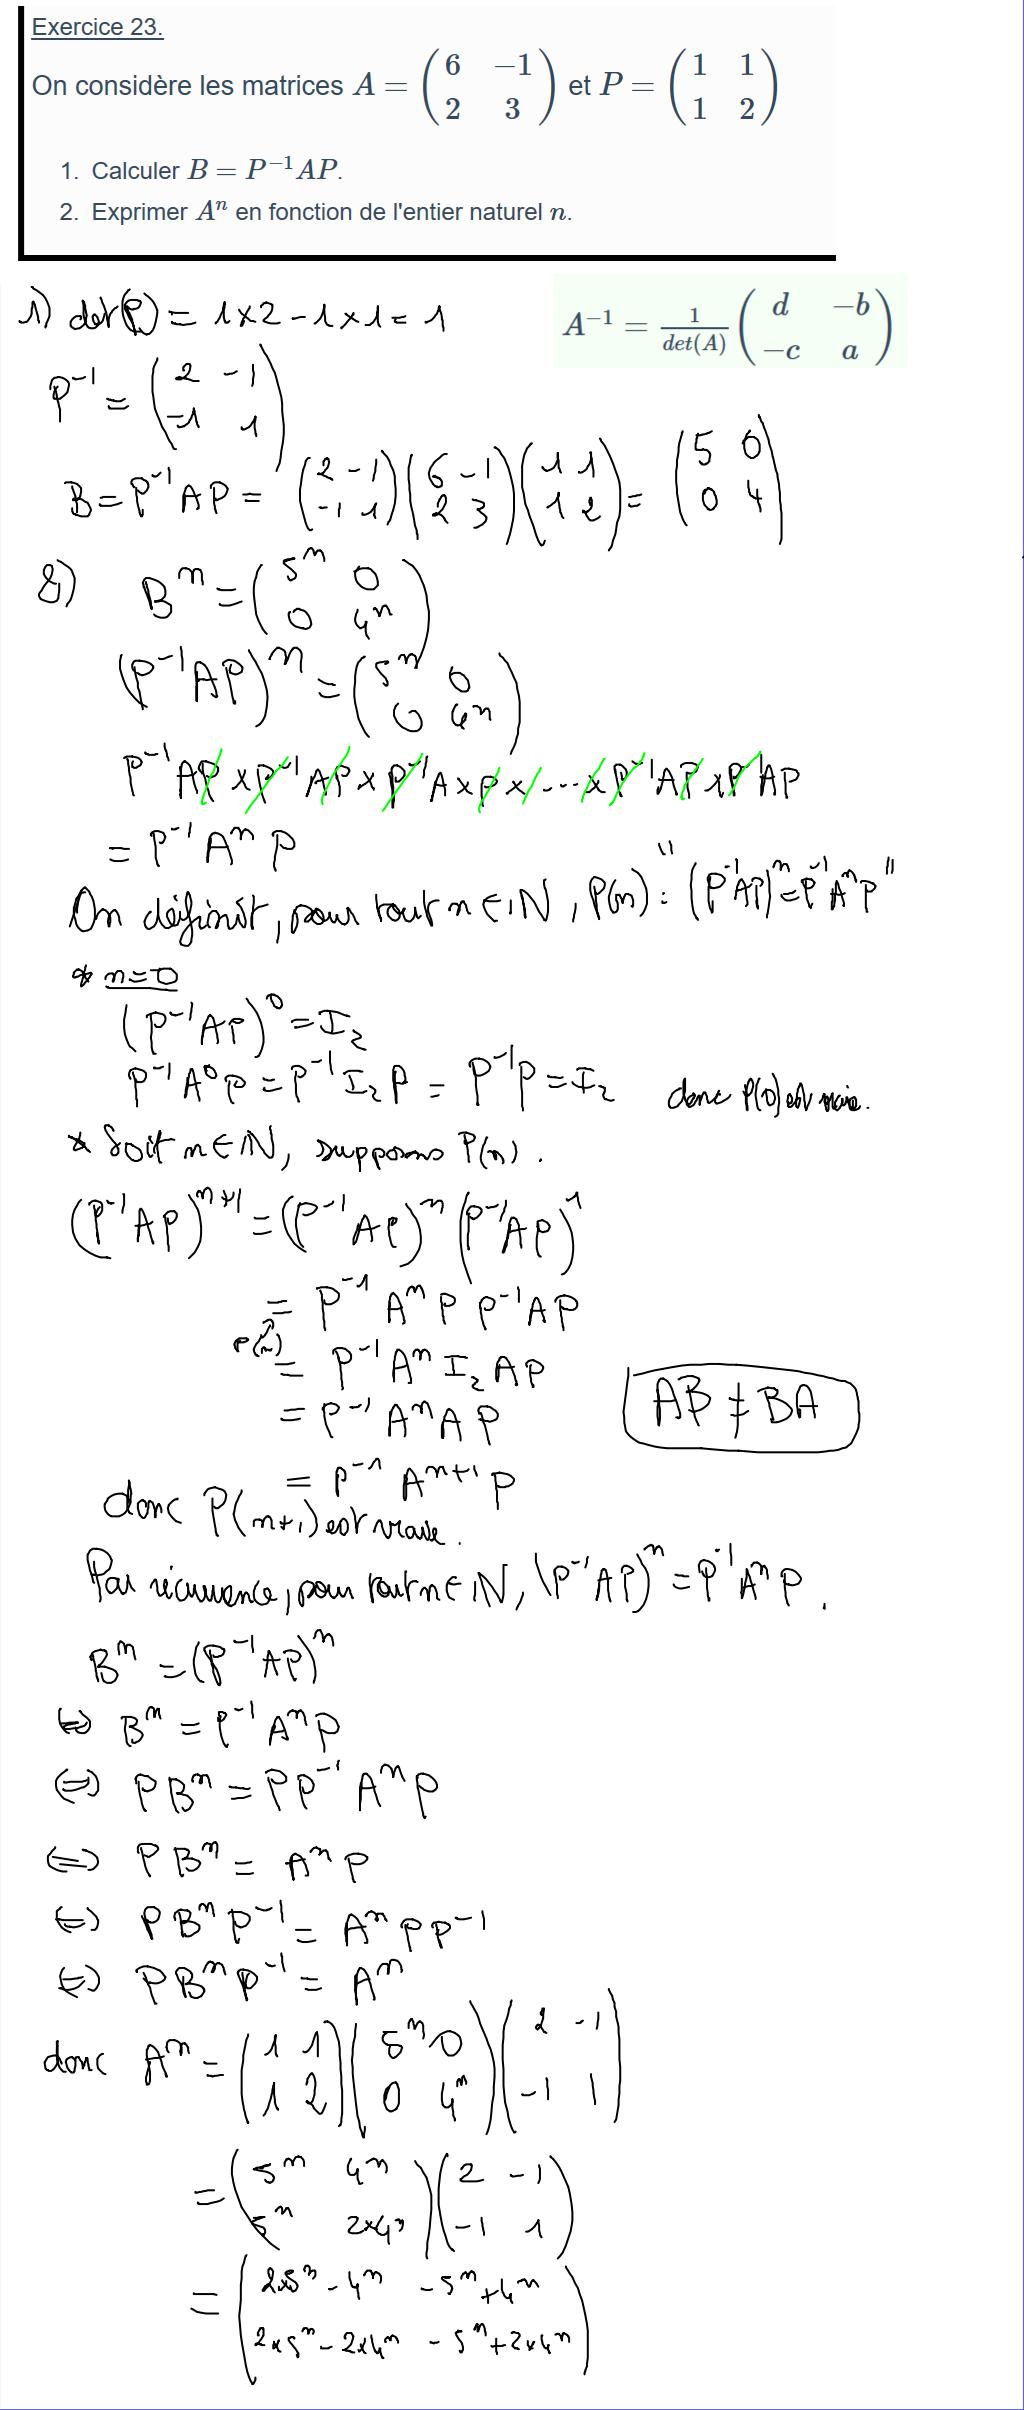 Exercice 23.
On considère les matrices A = (6 −1 ; 2 3) et P = (1 1 ; 1 2)
1. Calculer B = P⁻¹AP.
2. Exprimer Aⁿ en fonction de l'entier naturel n.
1) det(P) = 1×2 − 1×1 = 1
A⁻¹ = 1/det(A) (d −b ; −c a)
P⁻¹ = (2 −1 ; −1 1)
B = P⁻¹AP = (2 −1 ; −1 1)(6 −1 ; 2 3)(1 1 ; 1 2) = (5 0 ; 0 4)
2) Bⁿ = (5ⁿ 0 ; 0 4ⁿ)
(P⁻¹AP)ⁿ = (5ⁿ 0 ; 0 4ⁿ)
P⁻¹AP × P⁻¹AP × P⁻¹A × P × ... × P⁻¹AP × P⁻¹AP
= P⁻¹AⁿP
On définit, pour tout n ∈ ℕ, P(n) : "(P⁻¹AP)ⁿ = P⁻¹AⁿP"
* n=0
(P⁻¹AP)⁰ = I₂
P⁻¹A⁰P = P⁻¹I₂P = P⁻¹P = I₂ donc P(0) est vraie.
* Soit n ∈ ℕ, supposons P(n).
(P⁻¹AP)ⁿ⁺¹ = (P⁻¹AP)ⁿ(P⁻¹AP)¹
= P⁻¹AⁿP P⁻¹AP
P(n)
= P⁻¹AⁿI₂AP
AB ≠ BA
= P⁻¹AⁿAP
= P⁻¹Aⁿ⁺¹P
donc P(n+1) est vraie.
Par récurrence, pour tout n ∈ ℕ, (P⁻¹AP)ⁿ = P⁻¹AⁿP.
Bⁿ = (P⁻¹AP)ⁿ
⇔ Bⁿ = P⁻¹AⁿP
⇔ PBⁿ = PP⁻¹AⁿP
⇔ PBⁿ = AⁿP
⇔ PBⁿP⁻¹ = AⁿPP⁻¹
⇔ PBⁿP⁻¹ = Aⁿ
donc Aⁿ = (1 1 ; 1 2)(5ⁿ 0 ; 0 4ⁿ)(2 −1 ; −1 1)
= (5ⁿ 4ⁿ ; 5ⁿ 2×4ⁿ)(2 −1 ; −1 1)
= (2×5ⁿ − 4ⁿ −5ⁿ + 4ⁿ ; 2×5ⁿ − 2×4ⁿ −5ⁿ + 2×4ⁿ)